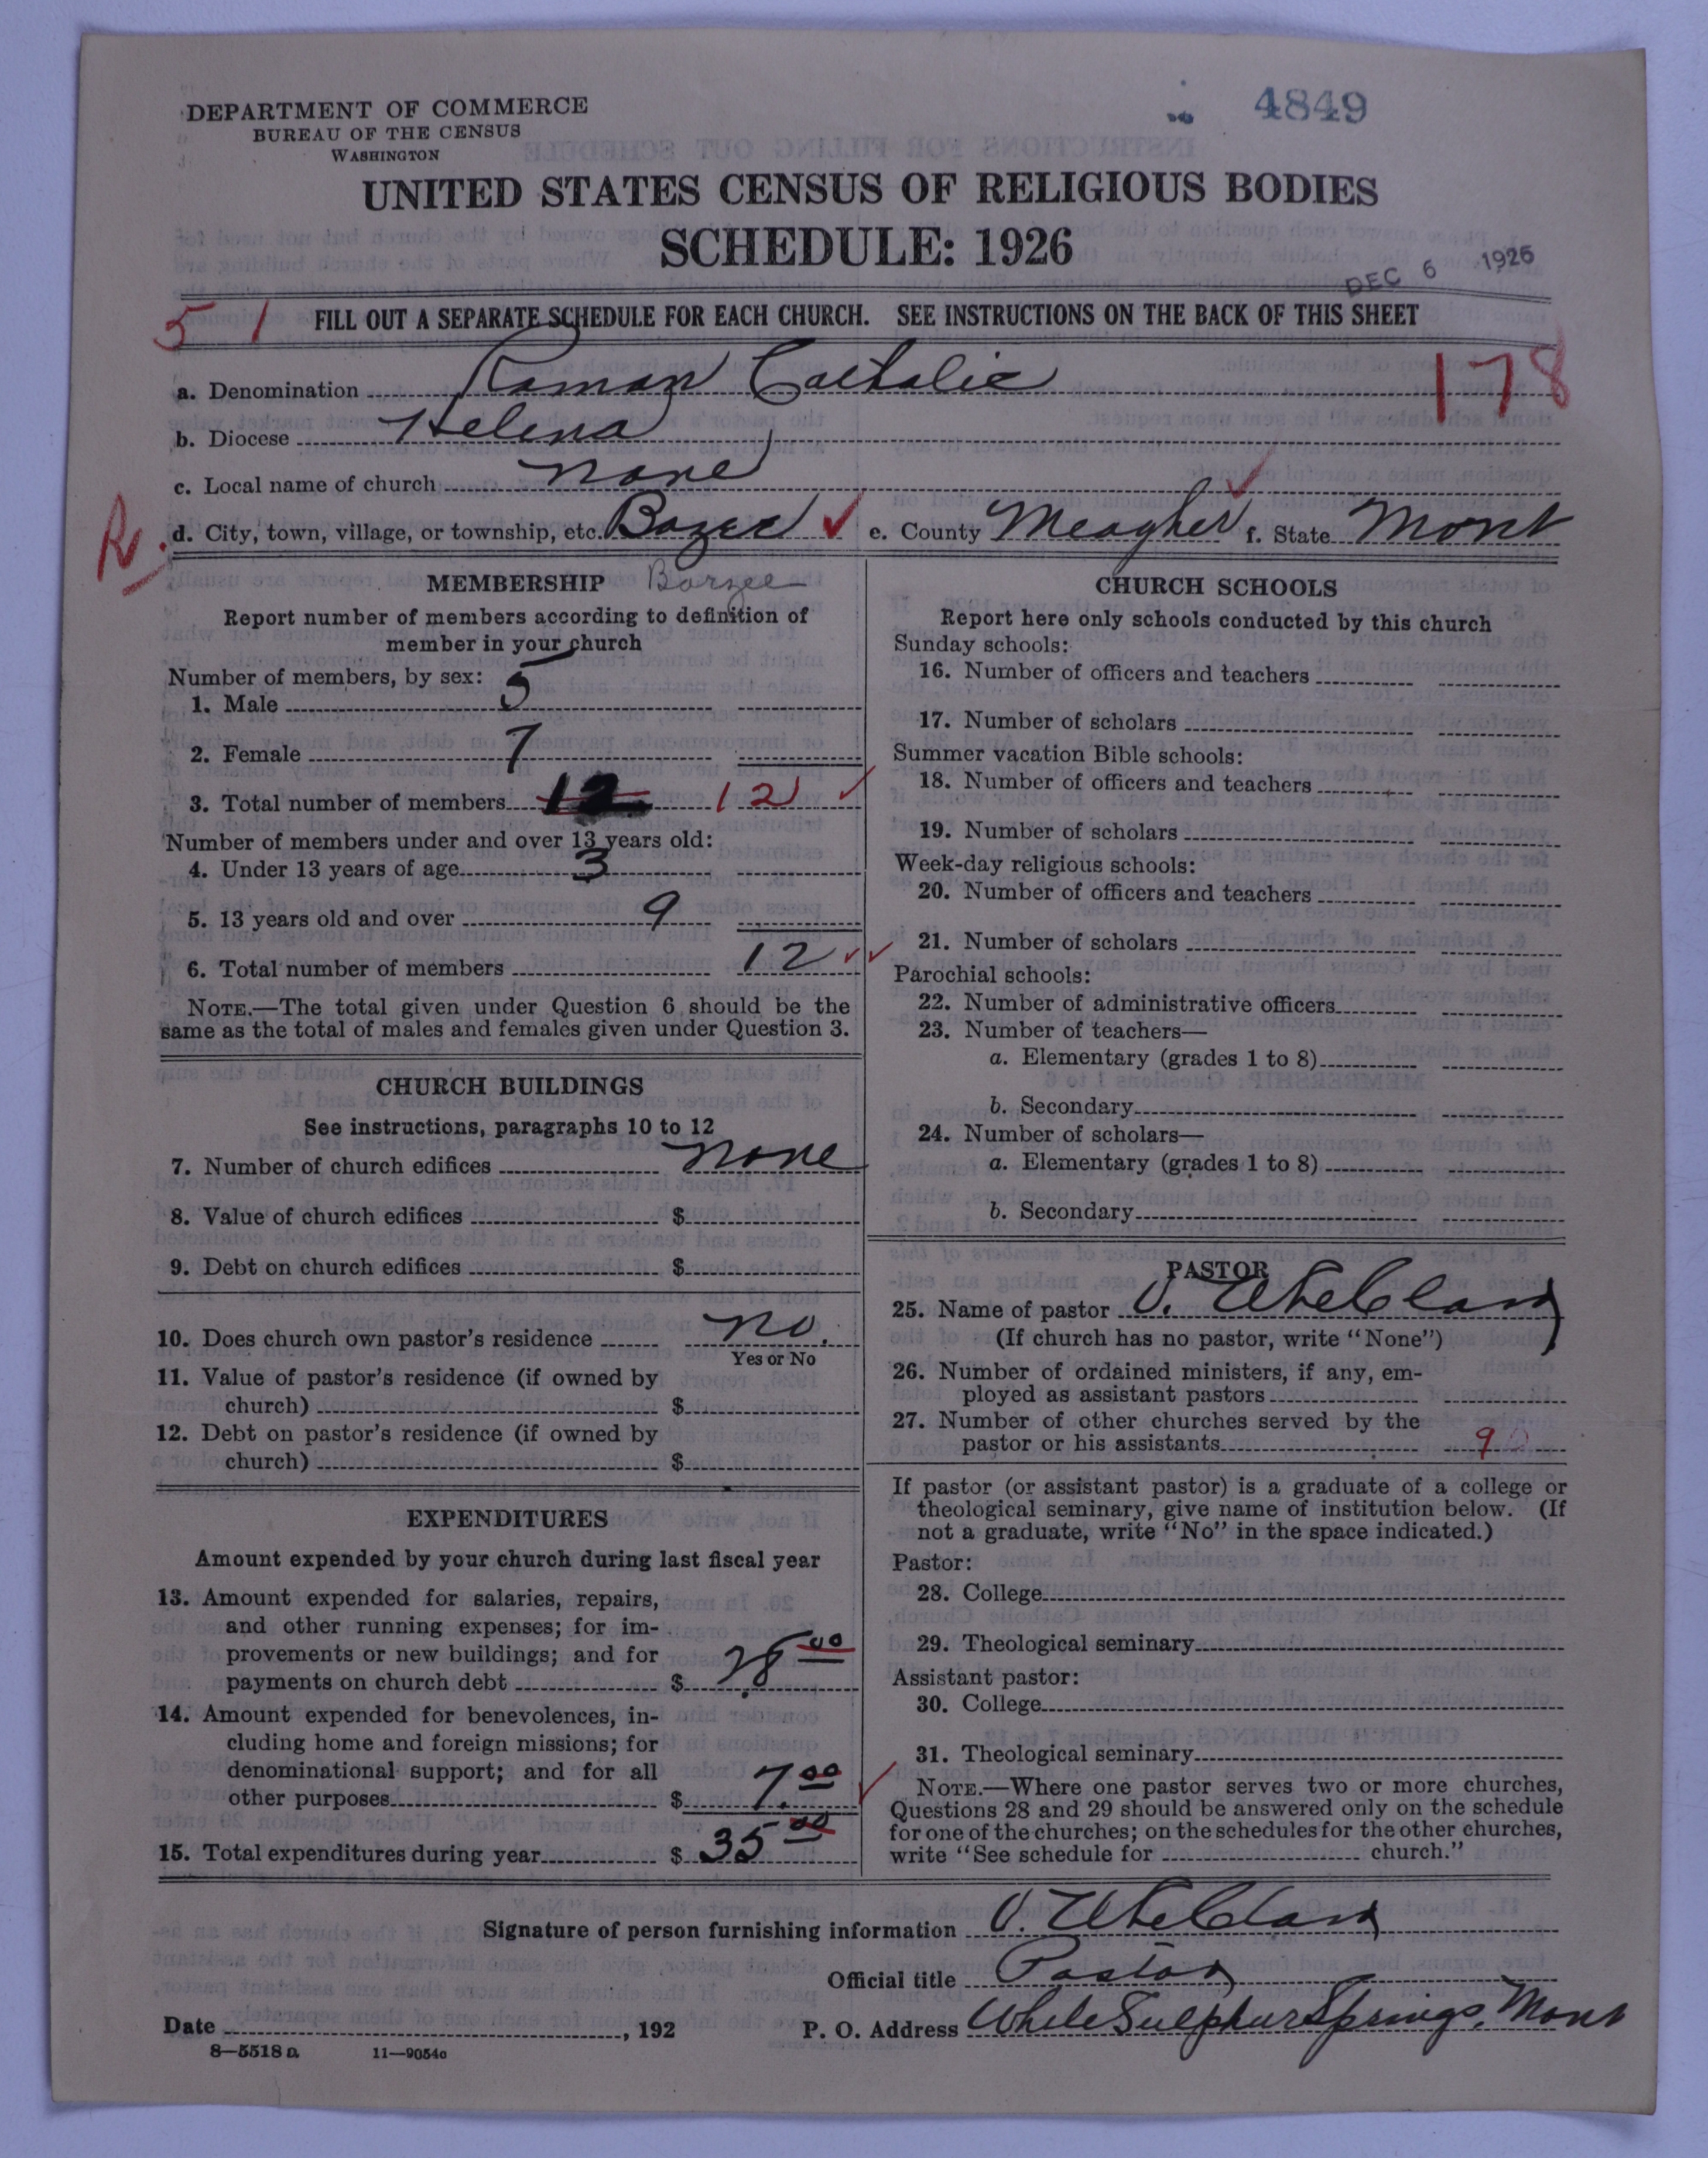 4849
DEPARTMENT OF COMMERCE
BUREAU OF THE CENSUS
WASHINGTON
UNITED STATES CENSUS OF RELIGIOUS BODIES
SCHEDULE: 1926
DEC 6 1926
51
FILL OUT A SEPARATE SCHEDULE FOR EACH CHURCH. SEE INSTRUCTIONS ON THE BACK OF THIS SHEET
178
a. Denomination Roman Catholic
b. Diocese Helena
c. Local name of church none
R.
d. City, town, village, or township, etc. Bozee e. County Meagher f. State Mont
MEMBERSHIP Barzee
Report number of members according to definition of
member in your church
Number of members, by sex:
1. Male 5
2. Female 7
3. Total number of members 12 12
Number of members under and over 13 years old:
4. Under 13 years of age 3
5. 13 years old and over 9
6. Total number of members 12
NOTE.—The total given under Question 6 should be the
same as the total of males and females given under Question 3.
CHURCH BUILDINGS
See instructions, paragraphs 10 to 12
7. Number of church edifices none
8. Value of church edifices $
9. Debt on church edifices $
10. Does church own pastor's residence no.
Yes or No
11. Value of pastor's residence (if owned by
church) $
12. Debt on pastor's residence (if owned by
church) $
EXPENDITURES
Amount expended by your church during last fiscal year
13. Amount expended for salaries, repairs,
and other running expenses; for im-
provements or new buildings; and for
payments on church debt $ 28.00
14. Amount expended for benevolences, in-
cluding home and foreign missions; for
denominational support; and for all
other purposes $ 7.00
15. Total expenditures during year $ 35 00
CHURCH SCHOOLS
Report here only schools conducted by this church
Sunday schools:
16. Number of officers and teachers
17. Number of scholars
Summer vacation Bible schools:
18. Number of officers and teachers
19. Number of scholars
Week-day religious schools:
20. Number of officers and teachers
21. Number of scholars
Parochial schools:
22. Number of administrative officers
23. Number of teachers—
a. Elementary (grades 1 to 8)
b. Secondary
24. Number of scholars—
a. Elementary (grades 1 to 8)
b. Secondary
PASTOR
25. Name of pastor
(If church has no pastor, write "None")
26. Number of ordained ministers, if any, em-
ployed as assistant pastors
27. Number of other churches served by the
pastor or his assistants 9
If pastor (or assistant pastor) is a graduate of a college or
theological seminary, give name of institution below. (If
not a graduate, write "No" in the space indicated.)
Pastor:
28. College
29. Theological seminary
Assistant pastor:
30. College
31. Theological seminary
NOTE.—Where one pastor serves two or more churches,
Questions 28 and 29 should be answered only on the schedule
for one of the churches; on the schedules for the other churches,
write "See schedule for church."
Signature of person furnishing information
Official title Pastor
Date , 192 P. O. Address White Sulphur Springs, Mont
8—5518 a 11—9054a